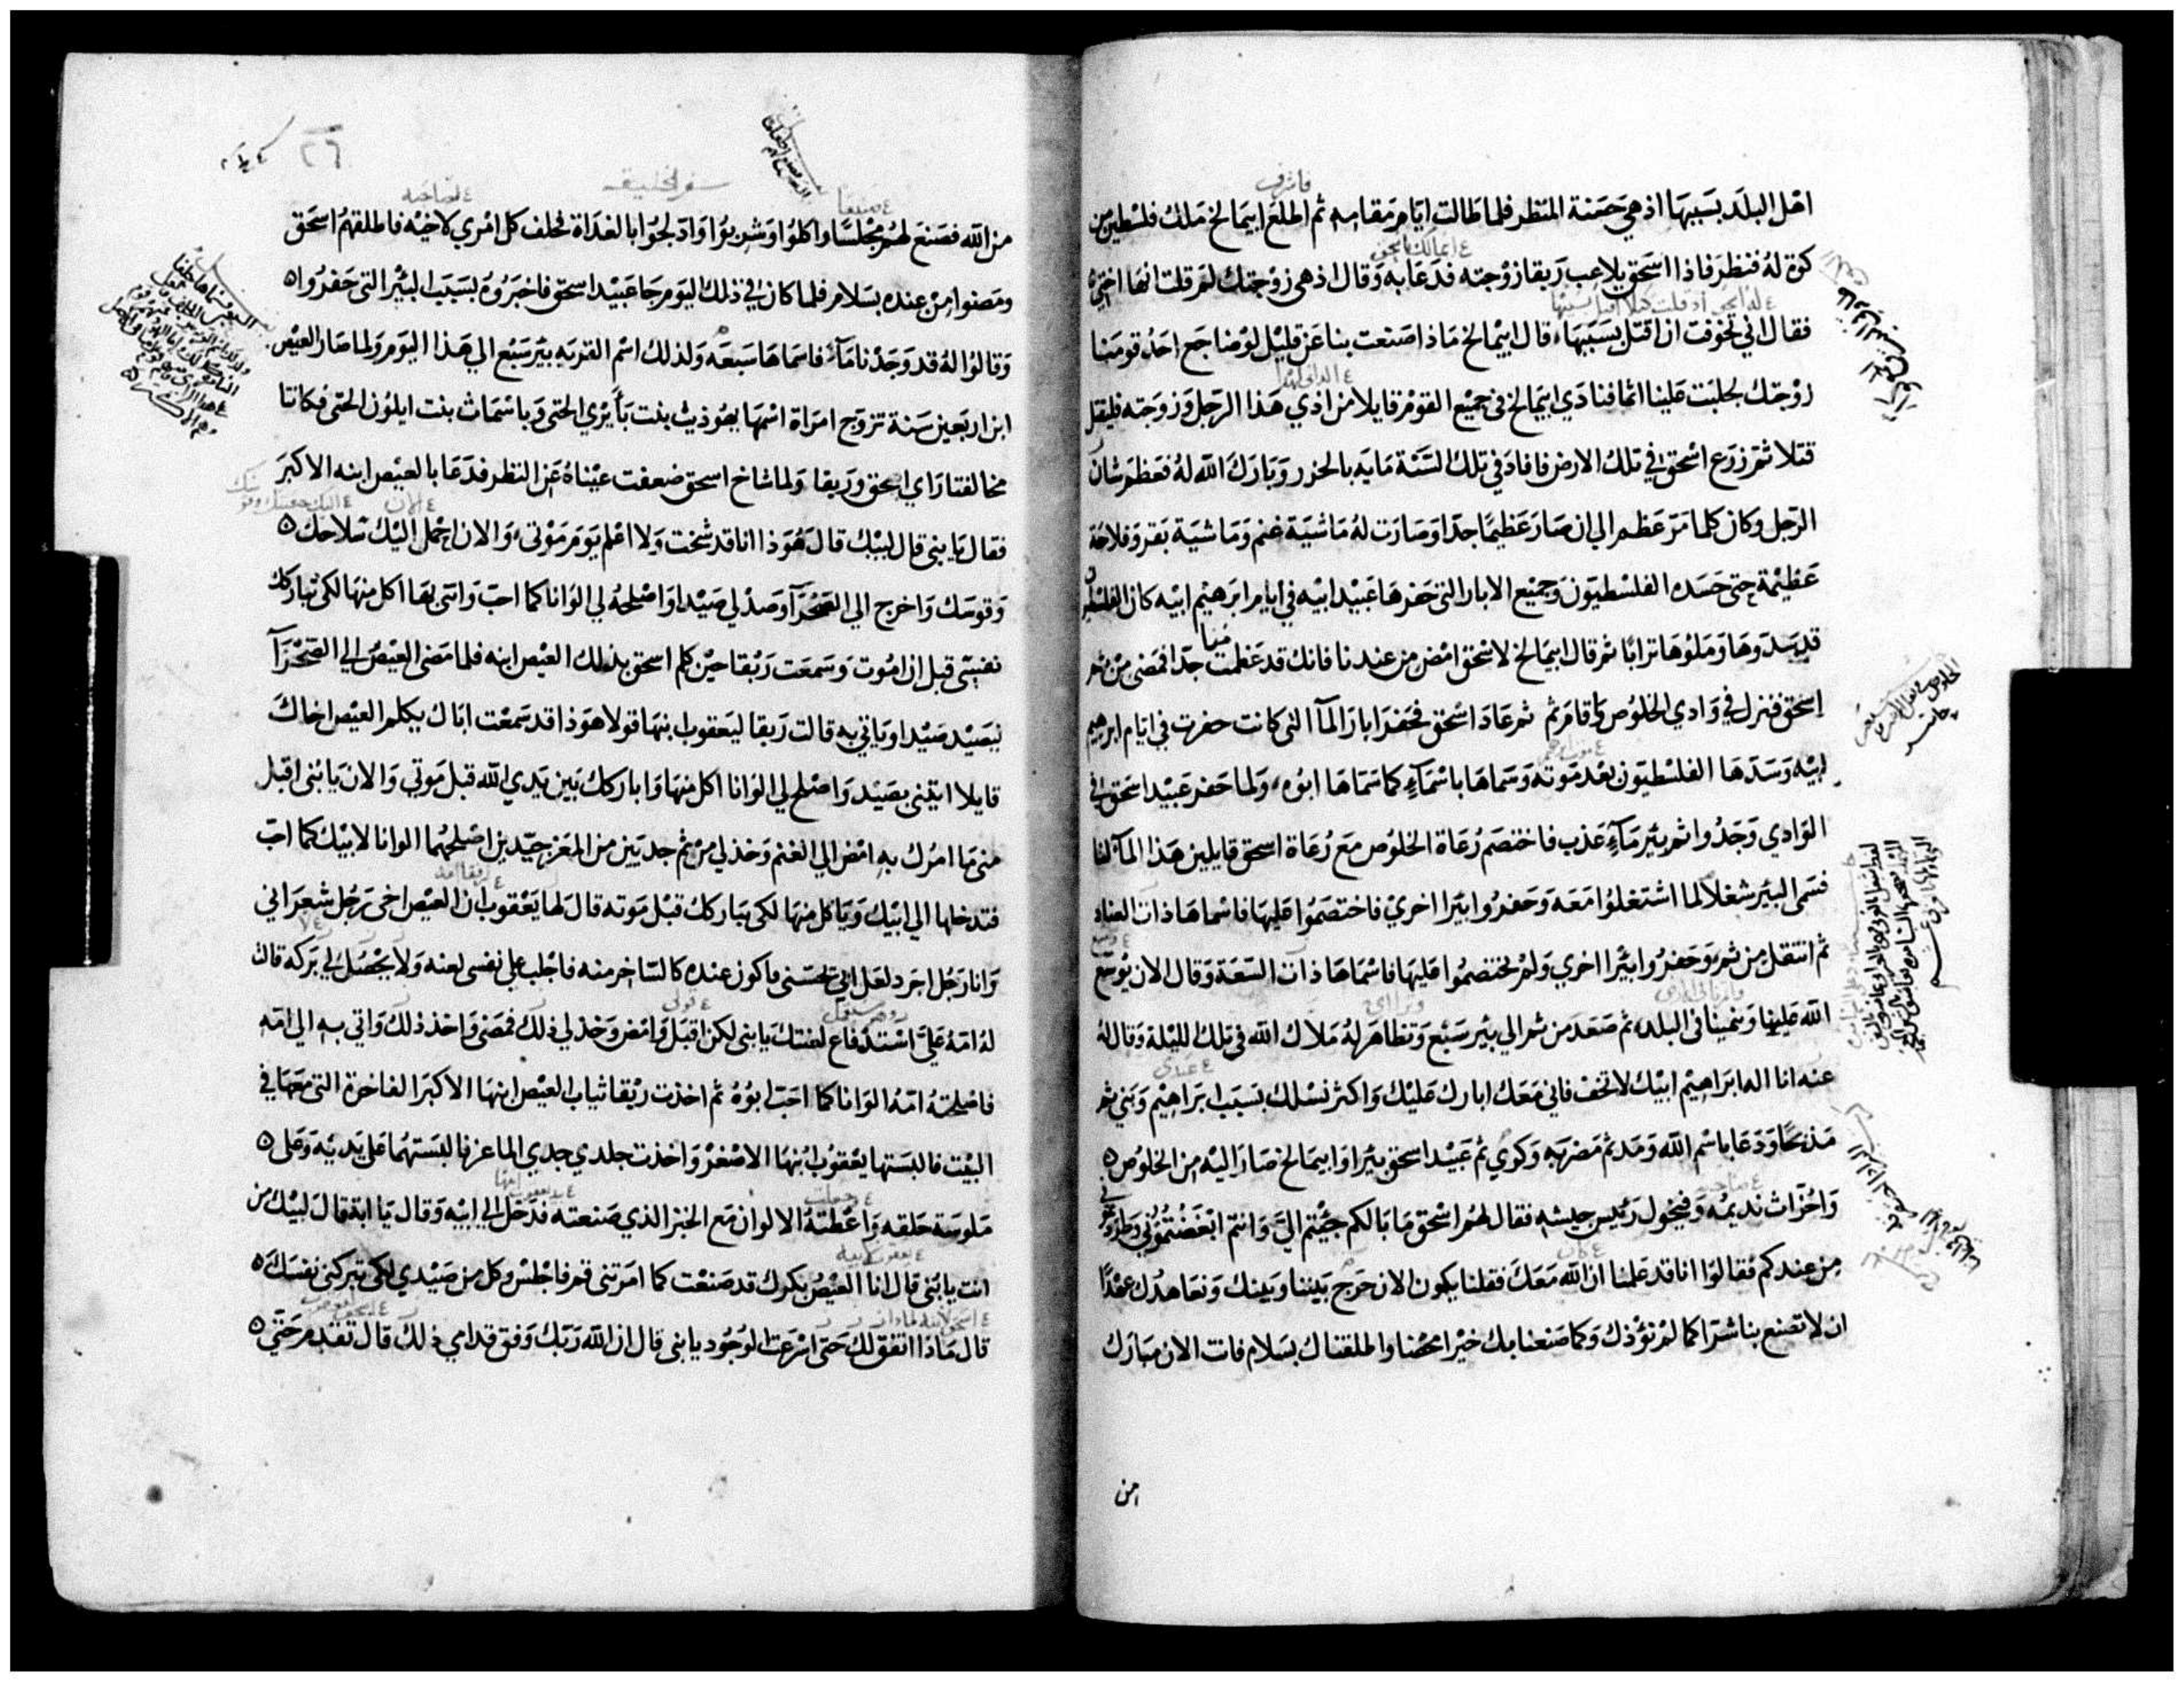 اهل البلد بسببها اذ هي حسنة المنظر فلما طالت ايام مقامه ثم اطلع ابيمالخ ملك فلسطين من
كوة له فنظر فاذا اسحق يلاعب ربقا زوجته فدعا به وقال اذ هي زوجتك لم قلت انها اختي
فقال اني تخوفت ان اقتل بسببها قال ابيمالخ ماذا صنعت بنا عن قليل لو ضاجع احد قومنا
زوجتك لجلبت علينا اثما فنادي ابيمالخ في جميع القوم قايلا من اذي هذا الرجل وزوجته فليقتل
قتلا ثم زرع اسحق في تلك الارض فافاد في تلك السنة مايه بالحزر وبارك الله له فعظم شان
الرجل وكان كلما مر عظم الي ان صار عظيما جدا وصارت له ماشية غنم وماشية بقر وفلاحة
عظيمة حتى حسده الفلسطيون وجميع الابار التي حفرها عبيد ابيه في ايام ابرهيم ابيه كان الفلسطيون
قد سدوها وملؤها ترابا ثم قال ابيمالخ لاسحق امض من عندنا فانك قد عظمت منا جدا فمضى من ثم
اسحق فنزل في وادي الخلوص واقام ثم ثم عاد اسحق فحفر ابار المآ التي كانت حفرت في ايام ابرهيم
ابيه وسدها الفلسطيون بعد موته وسماها باسمآء كما سماها ابوه ولما حفر عبيد اسحق في
الوادي وجدوا ثم بير مآء عذب فاختصم رعاة الخلوص مع رعاة اسحق قايلين هذا المآ لنا
فسمى البير شغلا لما اشتغلوا معه وحفروا بيرا اخري فاختصموا عليها فاسماها ذات العناد
ثم انتقل من ثم وحفروا بيرا اخري ولم يختصموا عليها فاسماها ذات السعة وقال الان يوسع
الله علينا وينمينا في البلد ثم صعد من ثم الي بير سبع وتظاهر له ملاك الله في تلك الليلة وقال له
عنه انا اله ابراهيم ابيك لا تخف فاني معك ابارك عليك واكثر نسلك بسبب ابراهيم وبنى ثم
مذبحا ودعا باسم الله ومد ثم مضربه وكري ثم عبيد اسحق بيرا وابيمالخ صار اليه من الخلوص
واخزاث نديمه وفيخول رئيس جيشه فقال لهم اسحق ما بالكم جيتم الي وانتم ابغضتموني وطردتموني
من عندكم فقالوا انا قد علمنا ان الله معك فقلنا يكون الان حرج بيننا وبينك ونعاهدك عهدا
ان لا تصنع بنا شرا كما لم نؤذك وكما صنعنا بك خيرا محضا واطلقناك بسلام فانت الان مبارك
من
٢٦
سفر الخليقه
من الله فصنع لهم مجلسا واكلوا وشربوا وادلجوا بالغداة فحلف كل امري لاخيه فاطلقهم اسحق
ومضوا من عنده بسلام فلما كان في ذلك اليوم جا عبيد اسحق فاخبروه بسبب البئر التي حفروا
وقالوا له قد وجدنا مآء فاسماها سبعه ولذلك اسم القريه بير سبع الي هذا اليوم ولما صار العيص
ابن اربعين سنة تزوج امراة اسمها يهوذيث بنت بأيري الحتى وباسماث بنت ايلون الحتى فكانتا
مخالفتا راي اسحق وربقا ولما شاخ اسحق ضعفت عيناه عن النظر فدعا بالعيص ابنه الاكبر
فقال يا بني قال لبيك قال هوذا انا قد شخت ولا اعلم يوم موتي والان احمل اليك سلاحك
وقوسك واخرج الي الصحرآ وصد لي صيدا واصلحه لي الوانا كما احب واتي بها اكل منها لكي تباركك
نفسي قبل ان اموت وسمعت ربقا حين كلم اسحق بذلك العيص ابنه فلما مضى العيص الي الصحرآ
ليصيد صيدا وياتي به قالت ربقا ليعقوب ابنها قولا هوذا قد سمعت اباك يكلم العيص اخاك
قايلا ايتني بصيد واصلح لي الوانا اكل منها واباركك بين يدي الله قبل موتي والان يا بنى اقبل
مني ما امرك به امض الي الغنم وخذ لي من ثم جديين من المعز جيدين اصلحهما الوانا لابيك كما احب
فتدخلها الي ابيك وياكل منها لكي يباركك قبل موته قال لها يعقوب ان العيص اخى رجل شعراني
وانا رجل اجرد لعل ابي يحسني فاكون عنده كالساخر منه فاجلب على نفسي لعنه ولا يحصل لي بركه قالت
له امه علي استدفاع لعنتك يا بنى لكن اقبل وامض وخذ لي ذلك فمضى واخذ ذلك واتى به الي امه
فاصلحته امه الوانا كما احب ابوه ثم اخذت ربقا ثياب العيص ابنها الاكبر الفاخرة التي معها في
البيت فالبستها يعقوب ابنها الاصغر واخذت جلدي جدي الماعز فالبستهما على يديه وعلى
ملوسة حلقه واعطته الالوان مع الخبز الذي صنعته فدخل الي ابيه وقال يا ابة قال لبيك من
انت يا بني قال انا العيص بكرك قد صنعت كما امرتني قم فاجلس وكل من صيدي لكي تبركني نفسك
قال ماذا اتفق لك حتى اسرعت الوجود يا بنى قال ان الله ربك وفق قدامي ذلك قال تقدم حتى